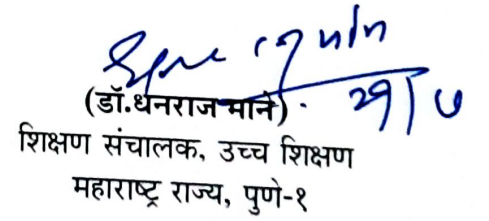 (डॉ.धनराज माने). २९/७
शिक्षण संचालक, उच्च शिक्षण
महाराष्ट्र राज्य, पुणे-१